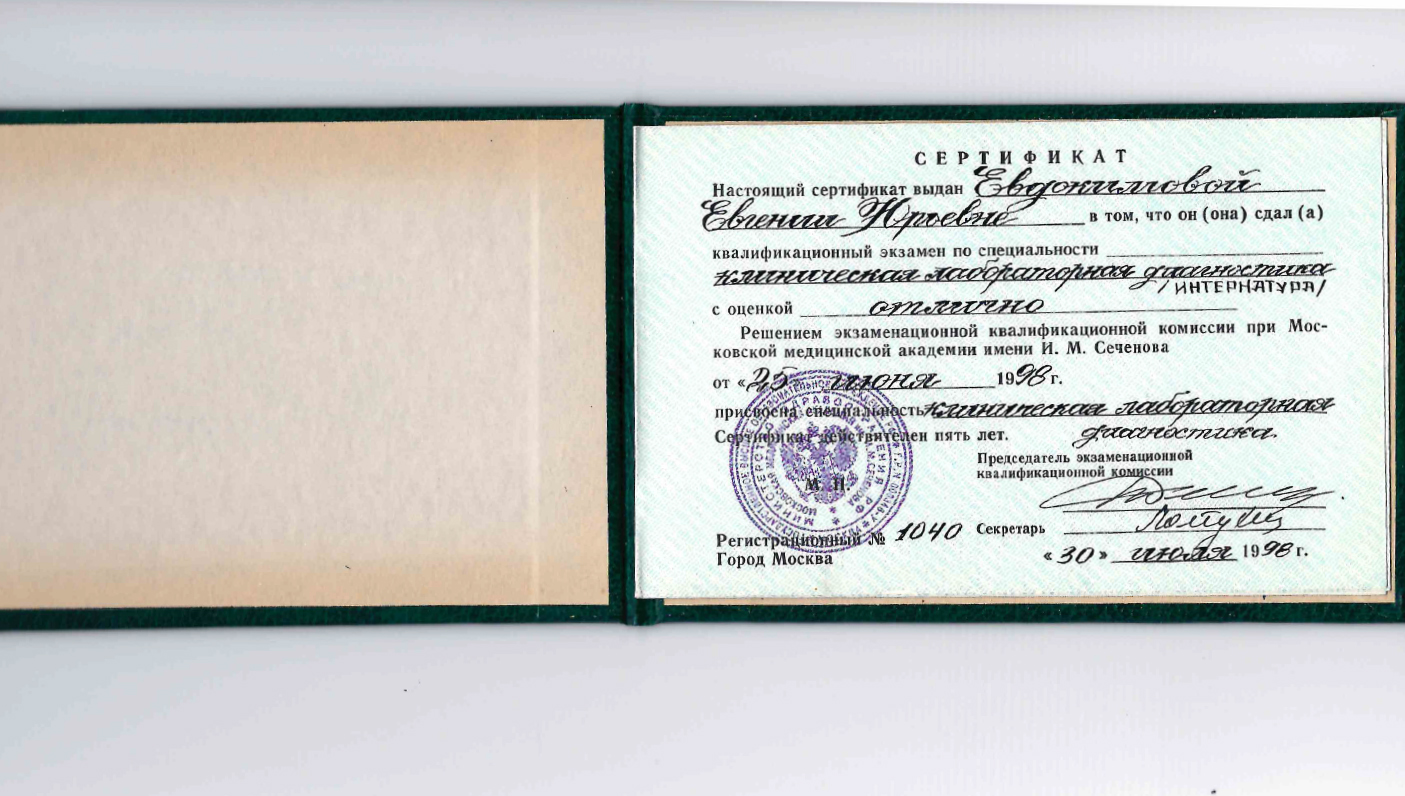 СЕРТИФИКАТ
Настоящий сертификат выдан Евдокимовой
Евгении Юрьевне в том, что он (она) сдал (а)
квалификационный экзамен по специальности
клиническая лабораторная диагностика
/ИНТЕРНАТУРА/
с оценкой отлично
Решением экзаменационной квалификационной комиссии при Мос-
ковской медицинской академии имени И. М. Сеченова
от «25» июня 1998 г.
присвоена специальность клиническая лабораторная
Сертификат действителен пять лет. диагностика.
Председатель экзаменационной
квалификационной комиссии
М. П.
МИНИСТЕРСТВО ЗДРАВООХРАНЕНИЯ РФ
Регистрационный № 1040 Секретарь
Город Москва «30» июля 1998 г.